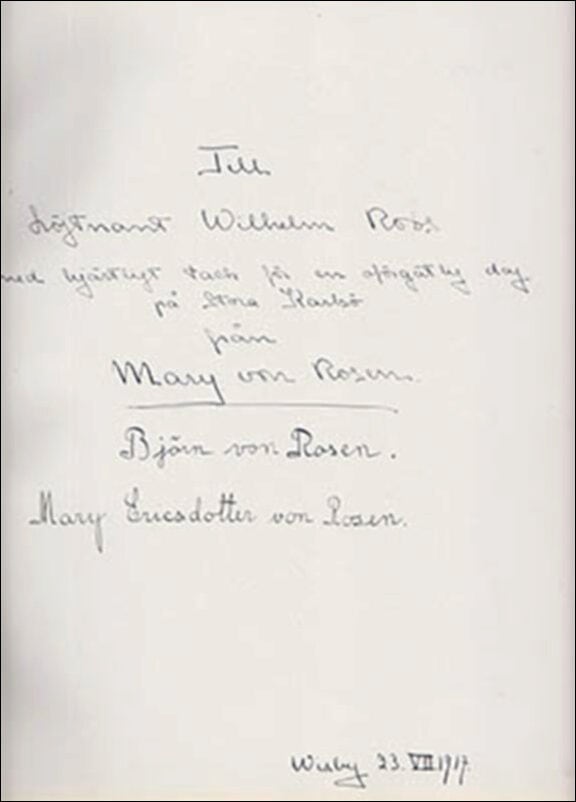 Till
Löjtnant Wilhelm Roos
med hjärtligt tack för en oförgätlig dag
på Stora Karlsö
från
Mary von Rosen.
Björn von Rosen.
Mary Ericsdotter von Rosen.
Wisby 23.VII 1917.